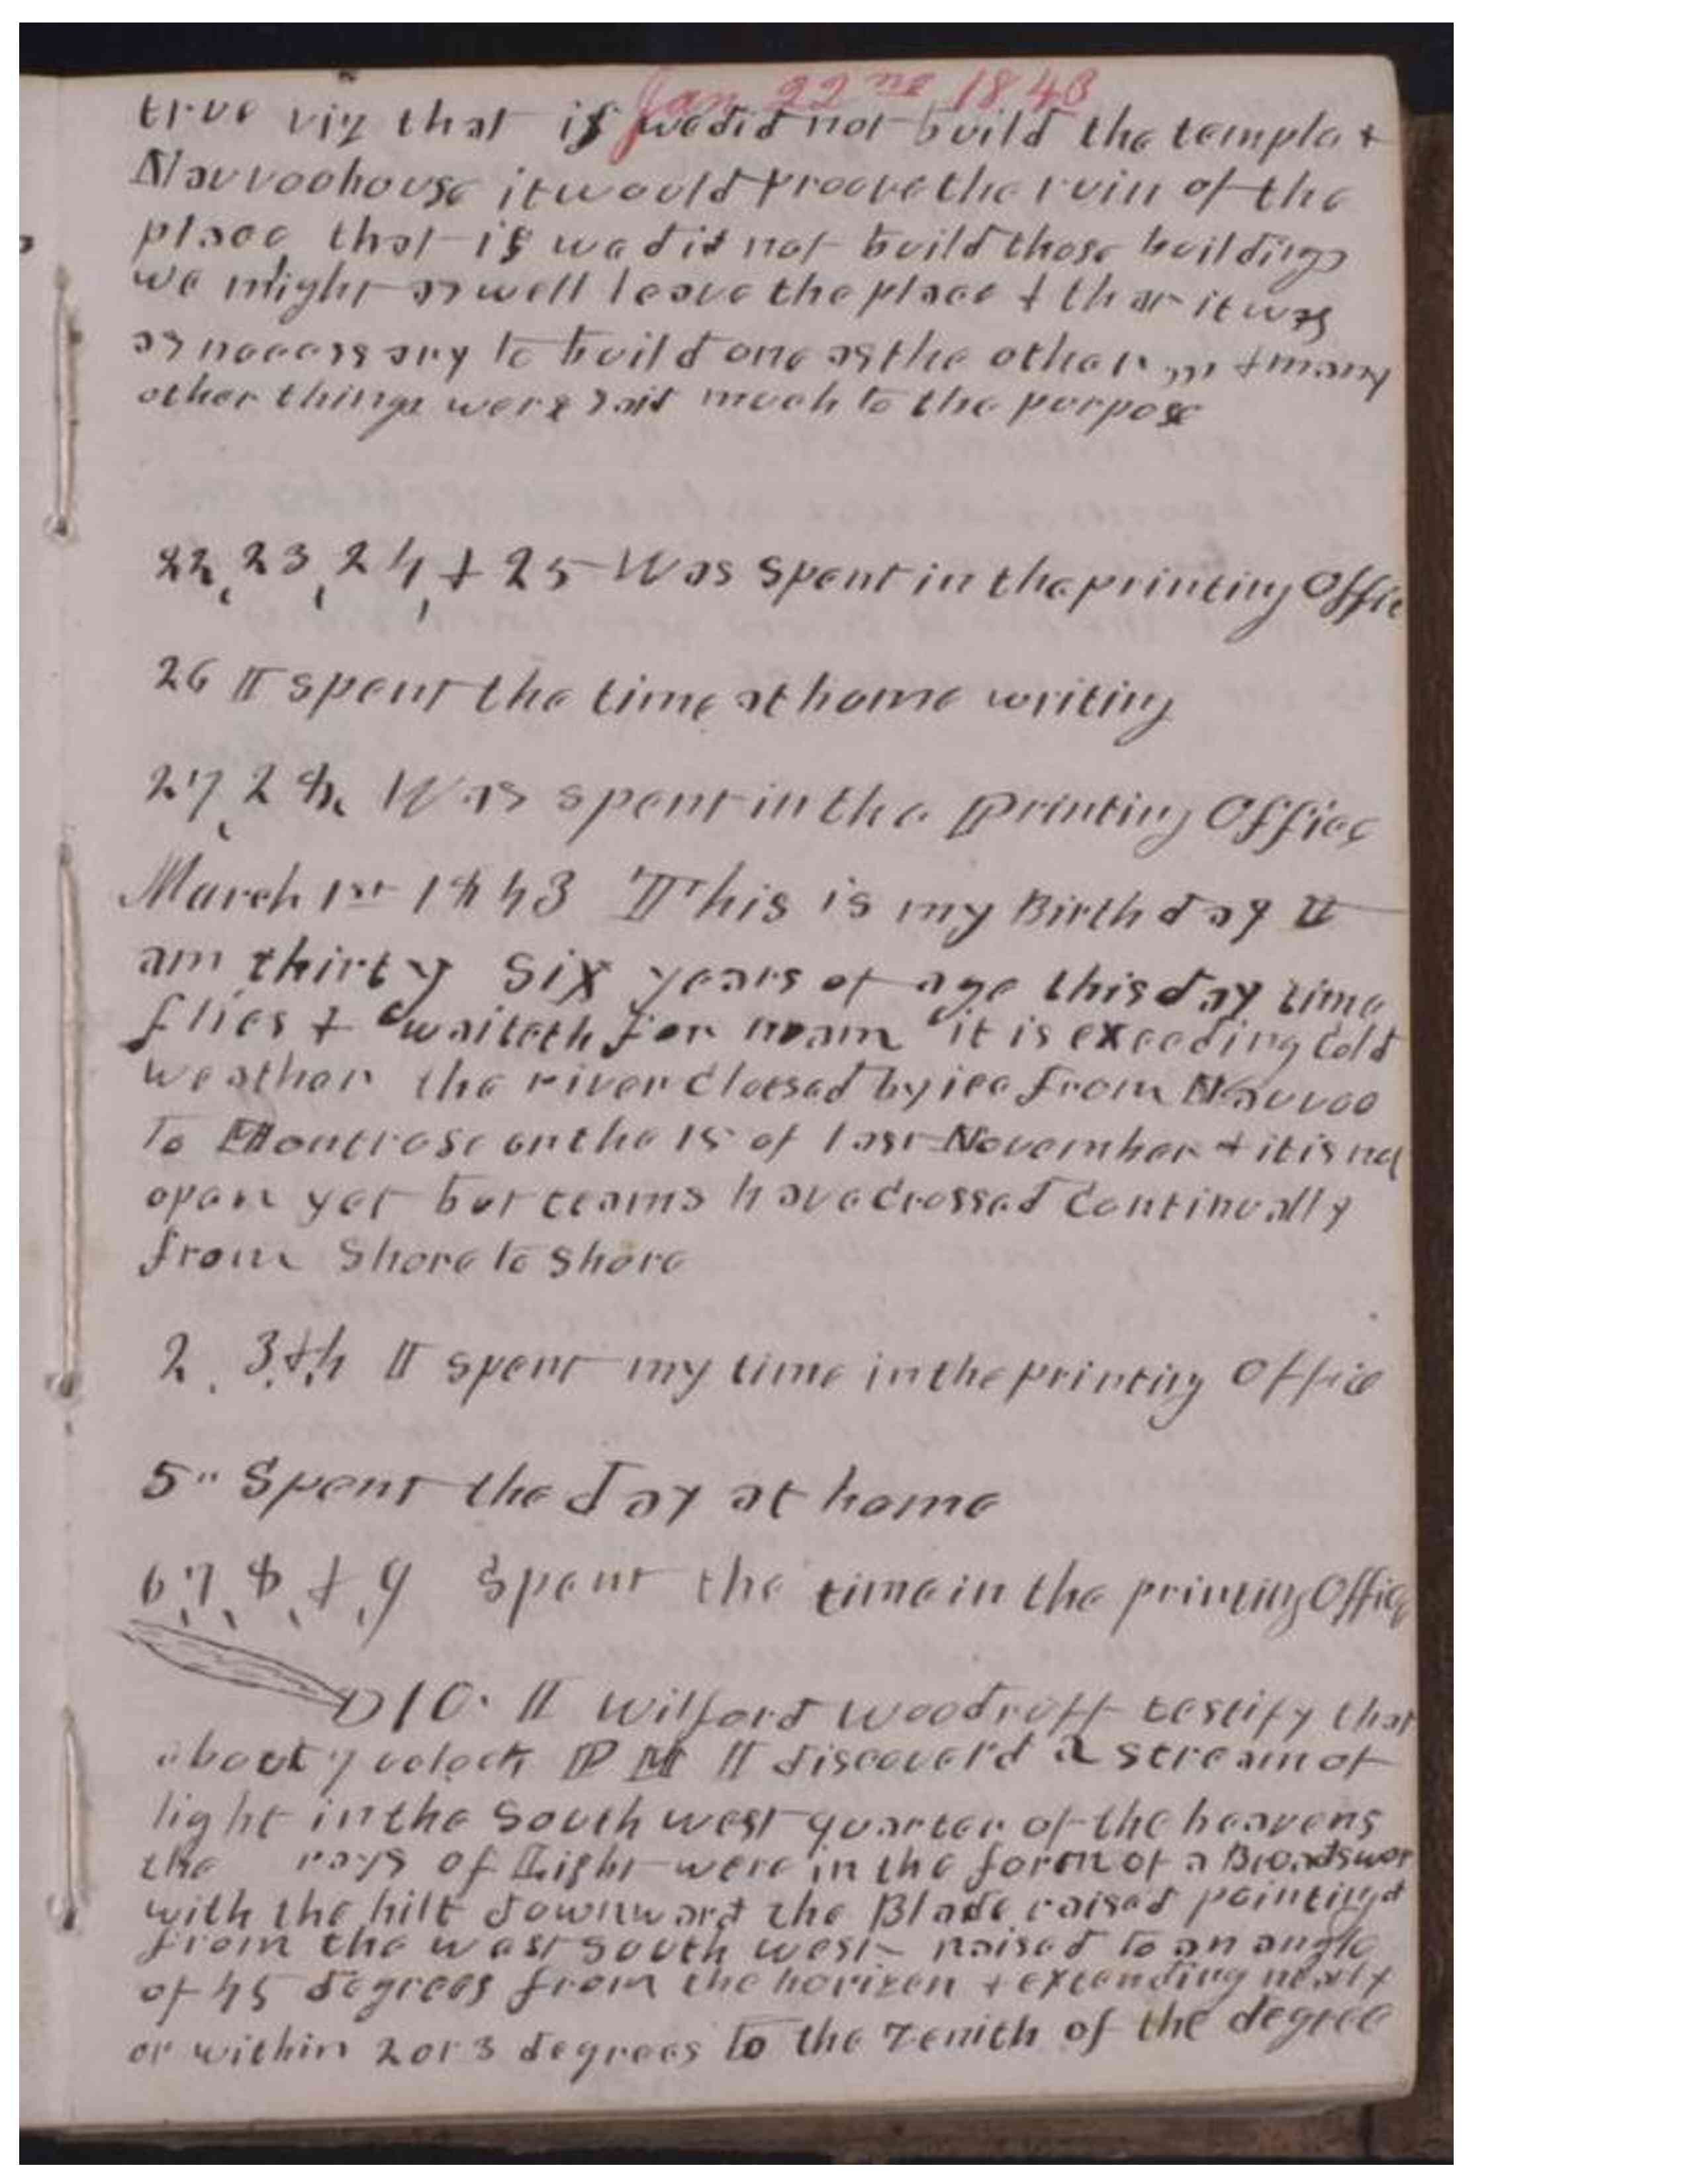 Jan 22nd 1843
true viz that if we did not build the temple &
Nauvoo house it would proove the ruin of the
place that if we did not build those buildings
we might as well leave the place & that it was
as necessary to build one as the other & many
other things were said much to the purpose
22, 23, 24, & 25 Was spent in the printing Office
26 I spent the time at home writing
27, 28. Was spent in the Printing Office
March 1st 1843 This is my Birth day I
am thirty six years of age this day time
flies & "waiteth for no man" it is exceeding Cold
weather the river Closed by ice from Nauvoo
to Montrose on the 15 of last November & it is not
open yet but teams have Crossed Continually
from Shore to Shore
2, 3, & 4 I spent my time in the printing Office
5" Spent the day at home
6, 7, 8, & 9 Spent the time in the printing Office
10. I Wilford Woodruff testify that
about 7 oclock P M I discoverd a stream of
light in the South west quarter of the heavens
the rays of Light were in the form of a Broad sword
with the hilt downward the Blade raised pointing
from the west south west raised to an angle
of 45 degrees from the horizen & extending nearly
or within 2 or 3 degrees to the Zenith of the degree